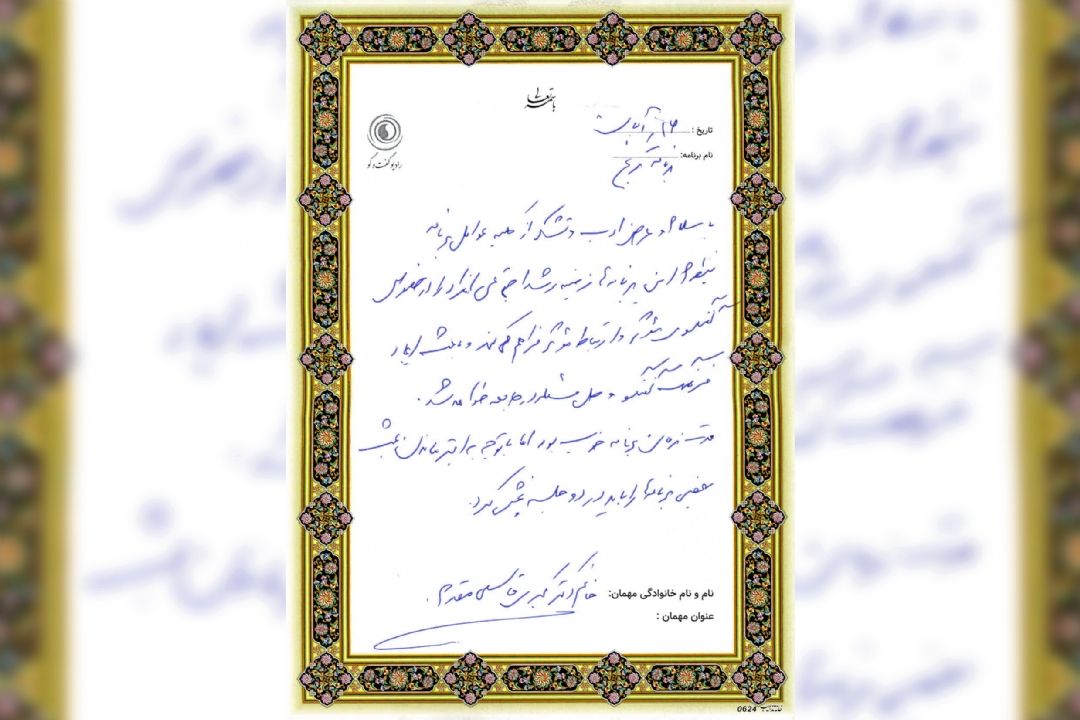 باسمه تعالی
رادیو گفت و گو
تاریخ : ۱۶ آبان
نام برنامه: برنامه ترنج
با سلام و عرض ادب و تشکر از کلیه عوامل برنامه
این برنامه‌ها زمینه رشد اجتماعی افراد را در خصوص
گفتگوی مؤثر و ارتباط مؤثر فراهم می‌کند و باعث ایجاد
گفتگو و حل مسئله در جامعه خواهد شد.
مدت زمان برنامه خوب بود اما با توجه به
بعضی برنامه‌ها را باید در دو جلسه پخش کرد.
نام و نام خانوادگی مهمان: خانم دکتر کبری قاسمی مقدم.
عنوان مهمان :
0624